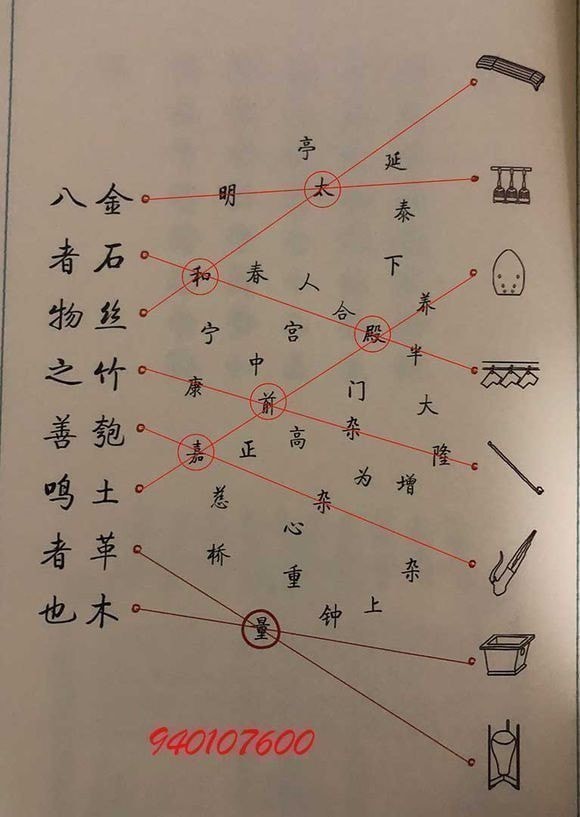 金石丝竹匏土革木
八者物之善鸣者也
亭
延
明
太
泰
和
春
人
下
合
养
宁
宫
殿
半
中
康
前
门
大
杂
嘉
正
高
隆
慈
杂
为
增
心
桥
重
杂
钟
上
量
940107600